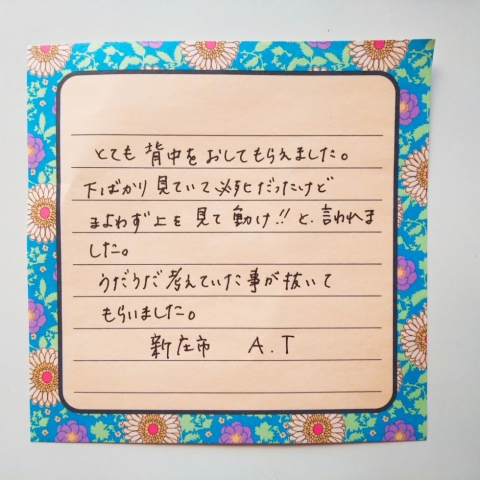 とても 背中を おしてもらえました。
下ばかり 見ていて 必死だったけど
まよわず 上を 見て 動け!! と、言われま
した。
うだうだ 考えていた 事が 抜いて
もらいました。
新庄市 A.T